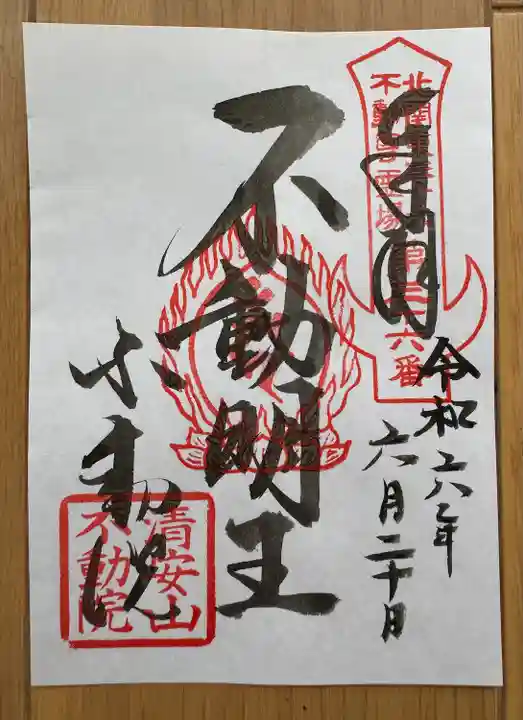 奉拝
北関東三十六
不動尊霊場第三十六番
令和六年
六月二十日
不動明王
不動院
清安山
不動院